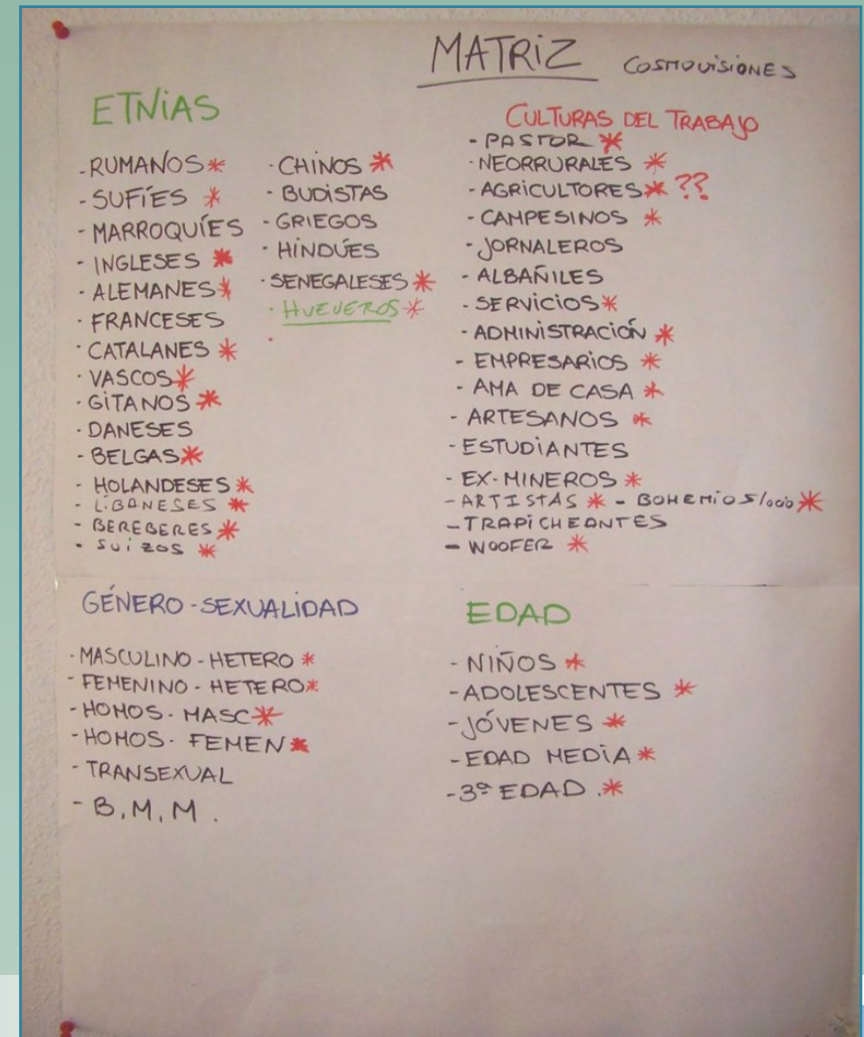 MATRIZ COSMOVISIONES
ETNIAS
-RUMANOS*
-SUFÍES *
-MARROQUÍES
-INGLESES *
-ALEMANES*
-FRANCESES
·CATALANES *
·VASCOS*
-GITANOS*
-DANESES
-BELGAS*
-HOLANDESES*
-LIBANESES *
-BEREBERES*
-SUIZOS *
·CHINOS *
-BUDISTAS
-GRIEGOS
-HINDÚES
·SENEGALESES*
·HUEVEROS*
CULTURAS DEL TRABAJO
-PASTOR *
·NEORRURALES *
-AGRICULTORES* ??
-CAMPESINOS *
-JORNALEROS
-ALBAÑILES
-SERVICIOS*
-ADMINISTRACIÓN *
-EMPRESARIOS *
-AMA DE CASA *
-ARTESANOS *
-ESTUDIANTES
-EX-MINEROS *
-ARTISTAS * - BOHEMIOS/ocio*
-TRAPICHEANTES
-WOOFER *
GÉNERO-SEXUALIDAD
-MASCULINO-HETERO *
-FEMENINO-HETERO*
-HOMOS. MASC*
-HOMOS. FEMEN*
-TRANSEXUAL
-B.M.M.
EDAD
-NIÑOS *
-ADOLESCENTES *
-JÓVENES *
-EDAD MEDIA*
-3ª EDAD.*